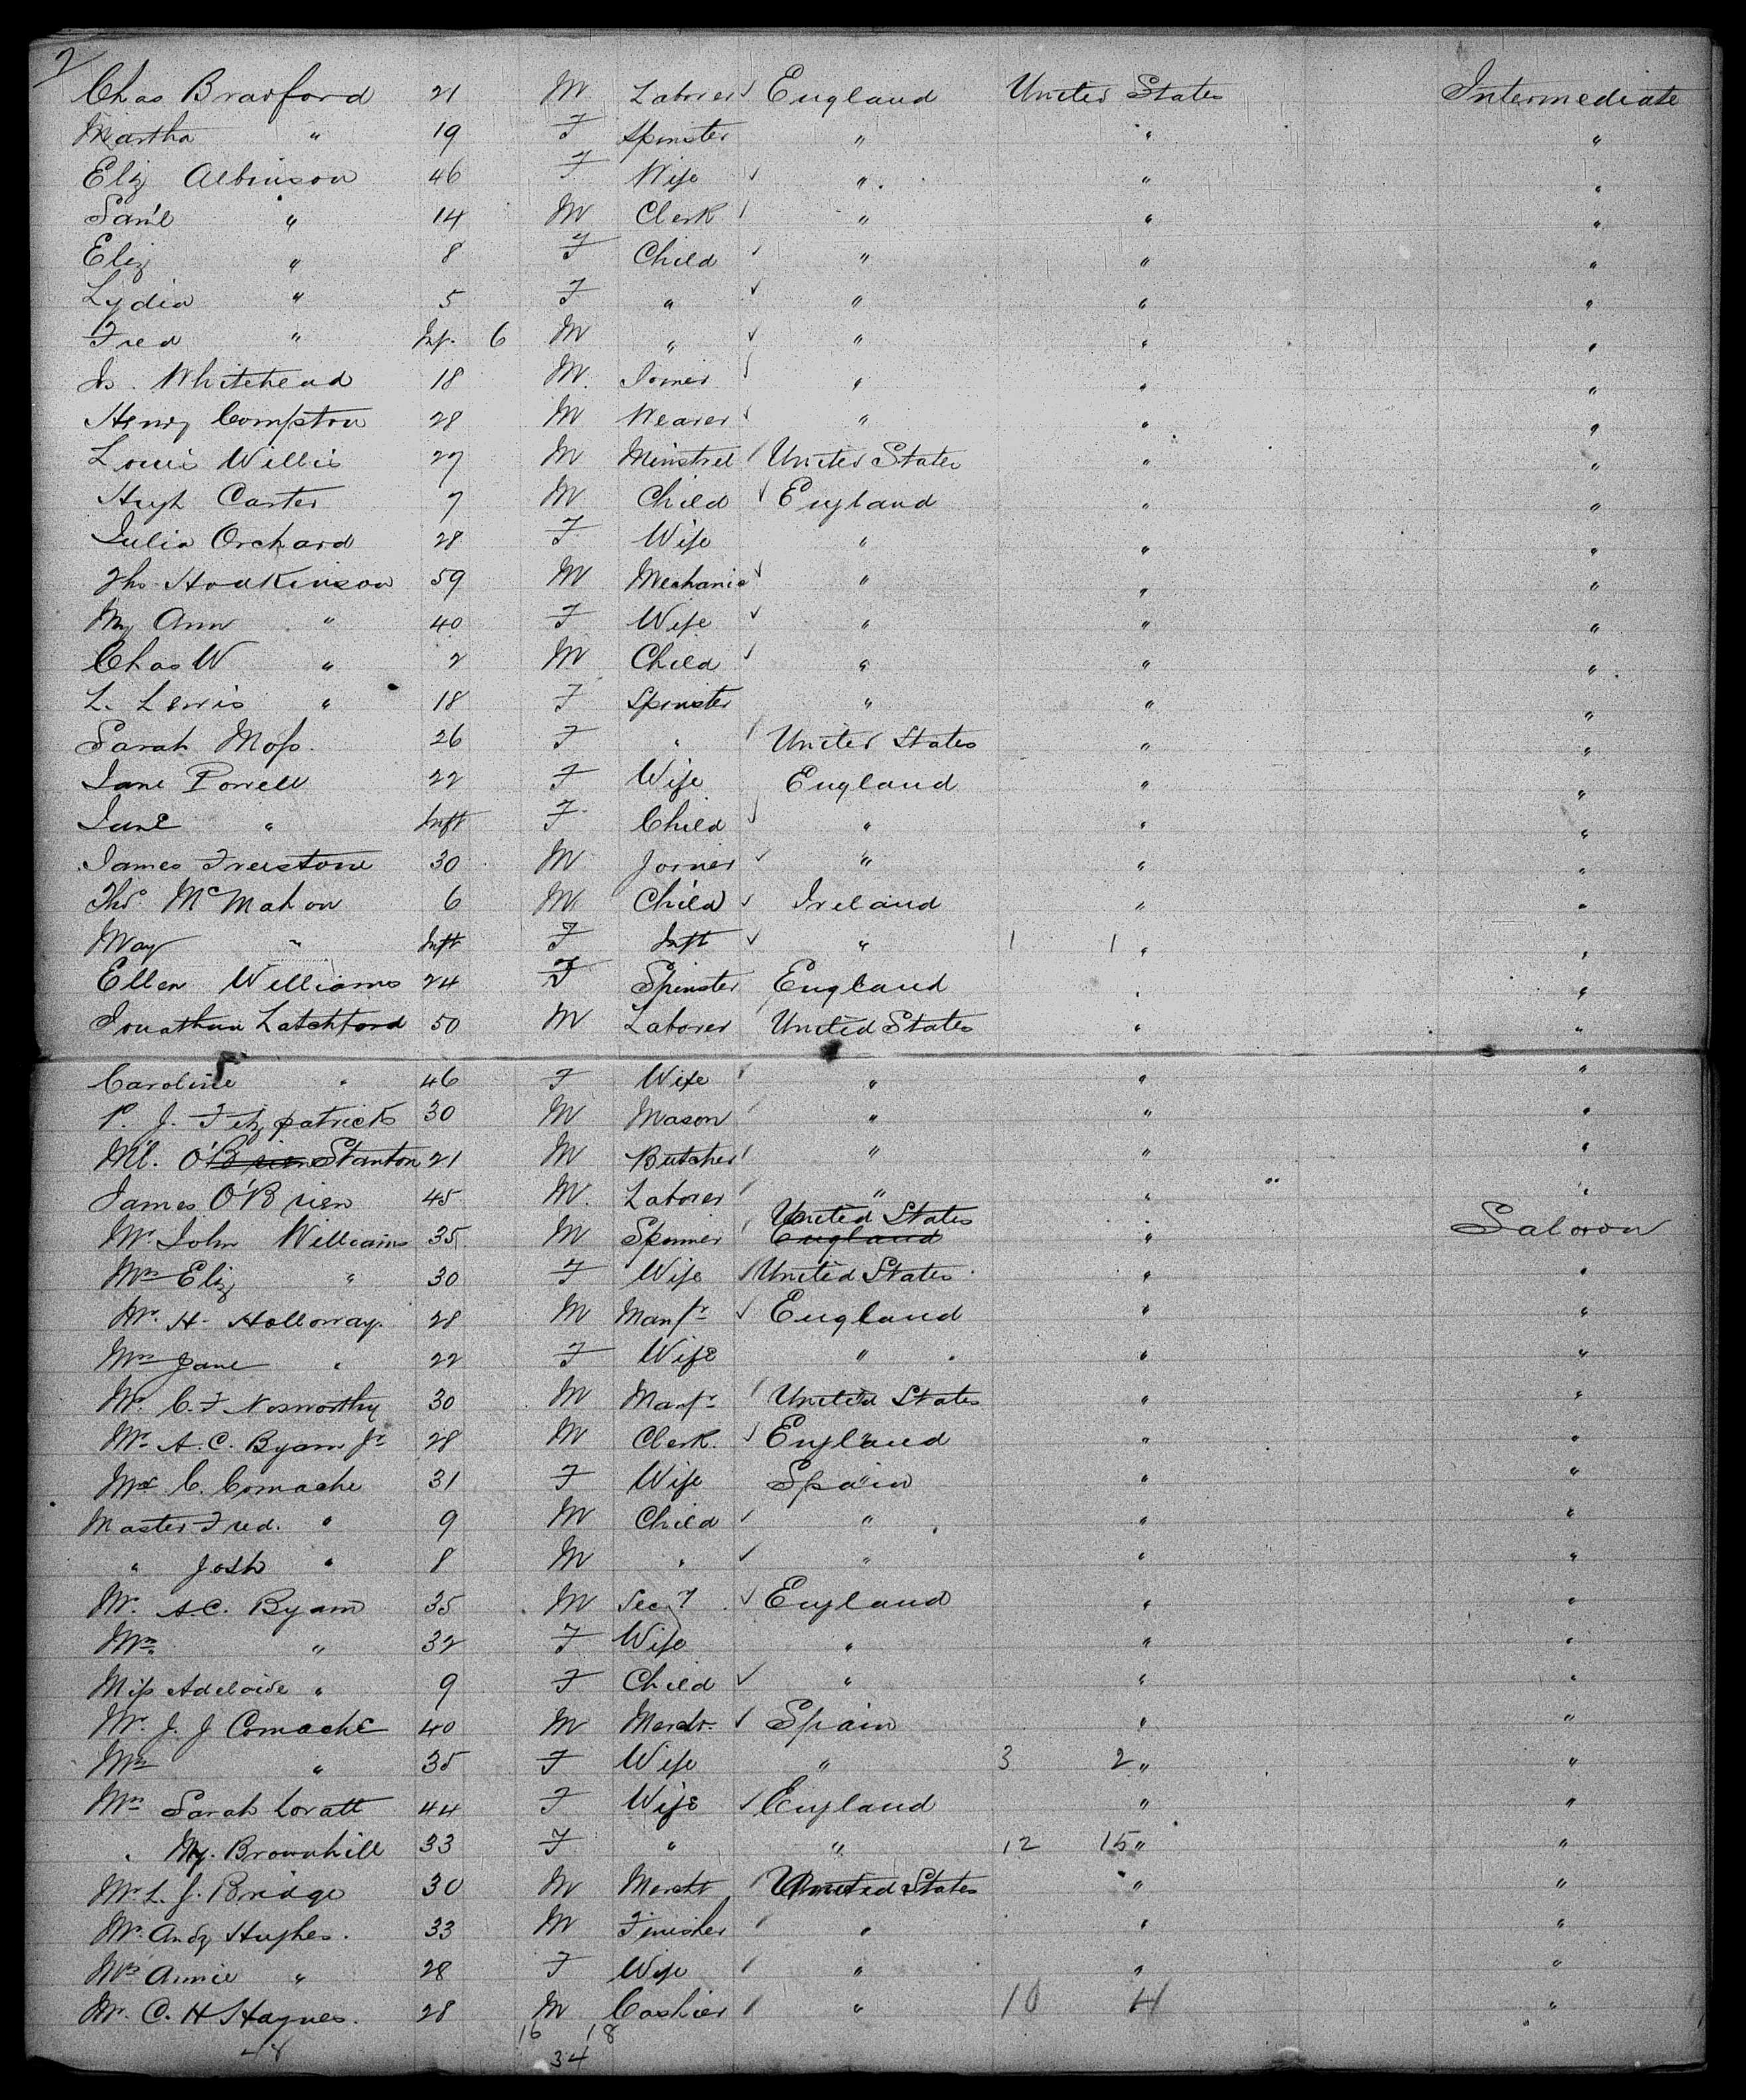 2
Chas Bradford 21 M Laborer England United States Intermediate
Martha " 19 F Spinster " " "
Eliz Albinson 46 F Wife " " "
Saml " 14 M Clerk " " "
Eliz " 8 F Child " " "
Lydia " 5 F " " " "
Fred " Inf. 6 M " " " "
Js. Whitehead 18 M. Joiner " " "
Henry Compston 28 M Weaver " " "
Louis Willis 27 M Minstrel United States " "
Hugh Carter 7 M Child England " "
Julia Orchard 28 F Wife " " "
Thos Hodkinson 59 M Mechanic " " "
My Ann " 40 F Wife " " "
Chas W " 2 M Child " " "
L. Lewis " 18 F Spinster " " "
Sarah Moss. 26 F " United States " "
Jane Powell 22 F Wife England " "
Jane " Inft F Child " " "
James Freistone 30 M Joiner " " "
Thos. McMahon 6 M Child Ireland " "
May " Inft F Inft " 1 1 " "
Ellen Williams 24 F Spinster England " "
Jonathan Latchford 50 M Laborer United States " "
Caroline " 46 F Wife " " "
P. J. Fitzpatrick 30 M Mason " " "
Ml. O'Brien Stanton 21 M Butcher " " "
James O'Brien 45 M. Laborer " " "
United States
Mr. John Williams 35 M Spinner England " Saloon
Mrs Eliz " 30 F Wife United States " "
Mr. H. Holloway. 28 M Manfr England " "
Mrs Jane " 22 F Wife " " "
Mr. C. F Nosworthy 30 M Manfr United States " "
Mr. A. C. Byam Jr 28 M Clerk. England " "
Mrs C. Comache 31 F Wife Spain " "
Master Fred. " 9 M Child " " "
" Josh " 8 M " " " "
Mr. A C. Byam 35 M Secy England " "
Mrs. " 32 F Wife " " "
Miss Adelaide " 9 F Child " " "
Mr. J. J Comache 40 M Mercht. Spain " "
Mrs " 35 F Wife " 3 2 " "
Mrs Sarah Lovatt 44 F Wife England " "
" My. Brownhill 33 F " " 12 15 " "
Mr. L. J. Bridge 30 M Mercht United States " "
Mr. Andy Hughes. 33 M Finisher " " "
Mrs Annie " 28 F Wife " " "
Mr. C. H Haynes. 28 M Cashier " 10 4 "
16 18
48 34